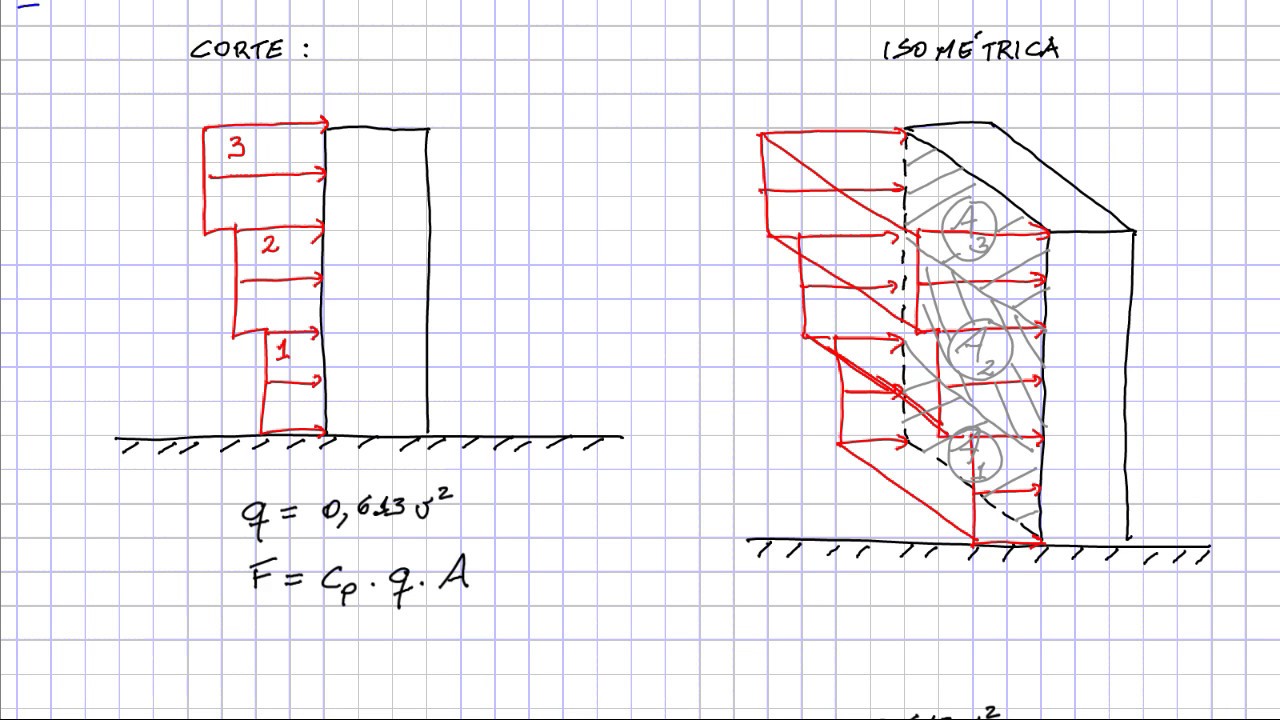 CORTE :
ISOMÉTRICA
3
2
1
A3
A2
A1
q = 0,613 v²
F = Cp . q . A